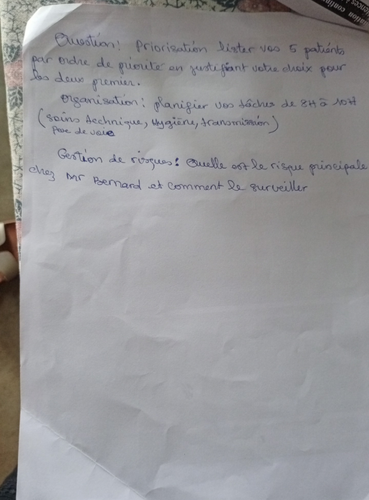 Question! Priorisation lister vos 5 patients
par ordre de priorité en justifiant votre choix pour
les deux premier.
Organisation : planifier vos tâches de 8H à 10H
(soins technique, Hygiène, transmission)
Pose de voie
Gestion de risques! Quelle est le risque principale
chez Mr Bernard et comment le surveiller